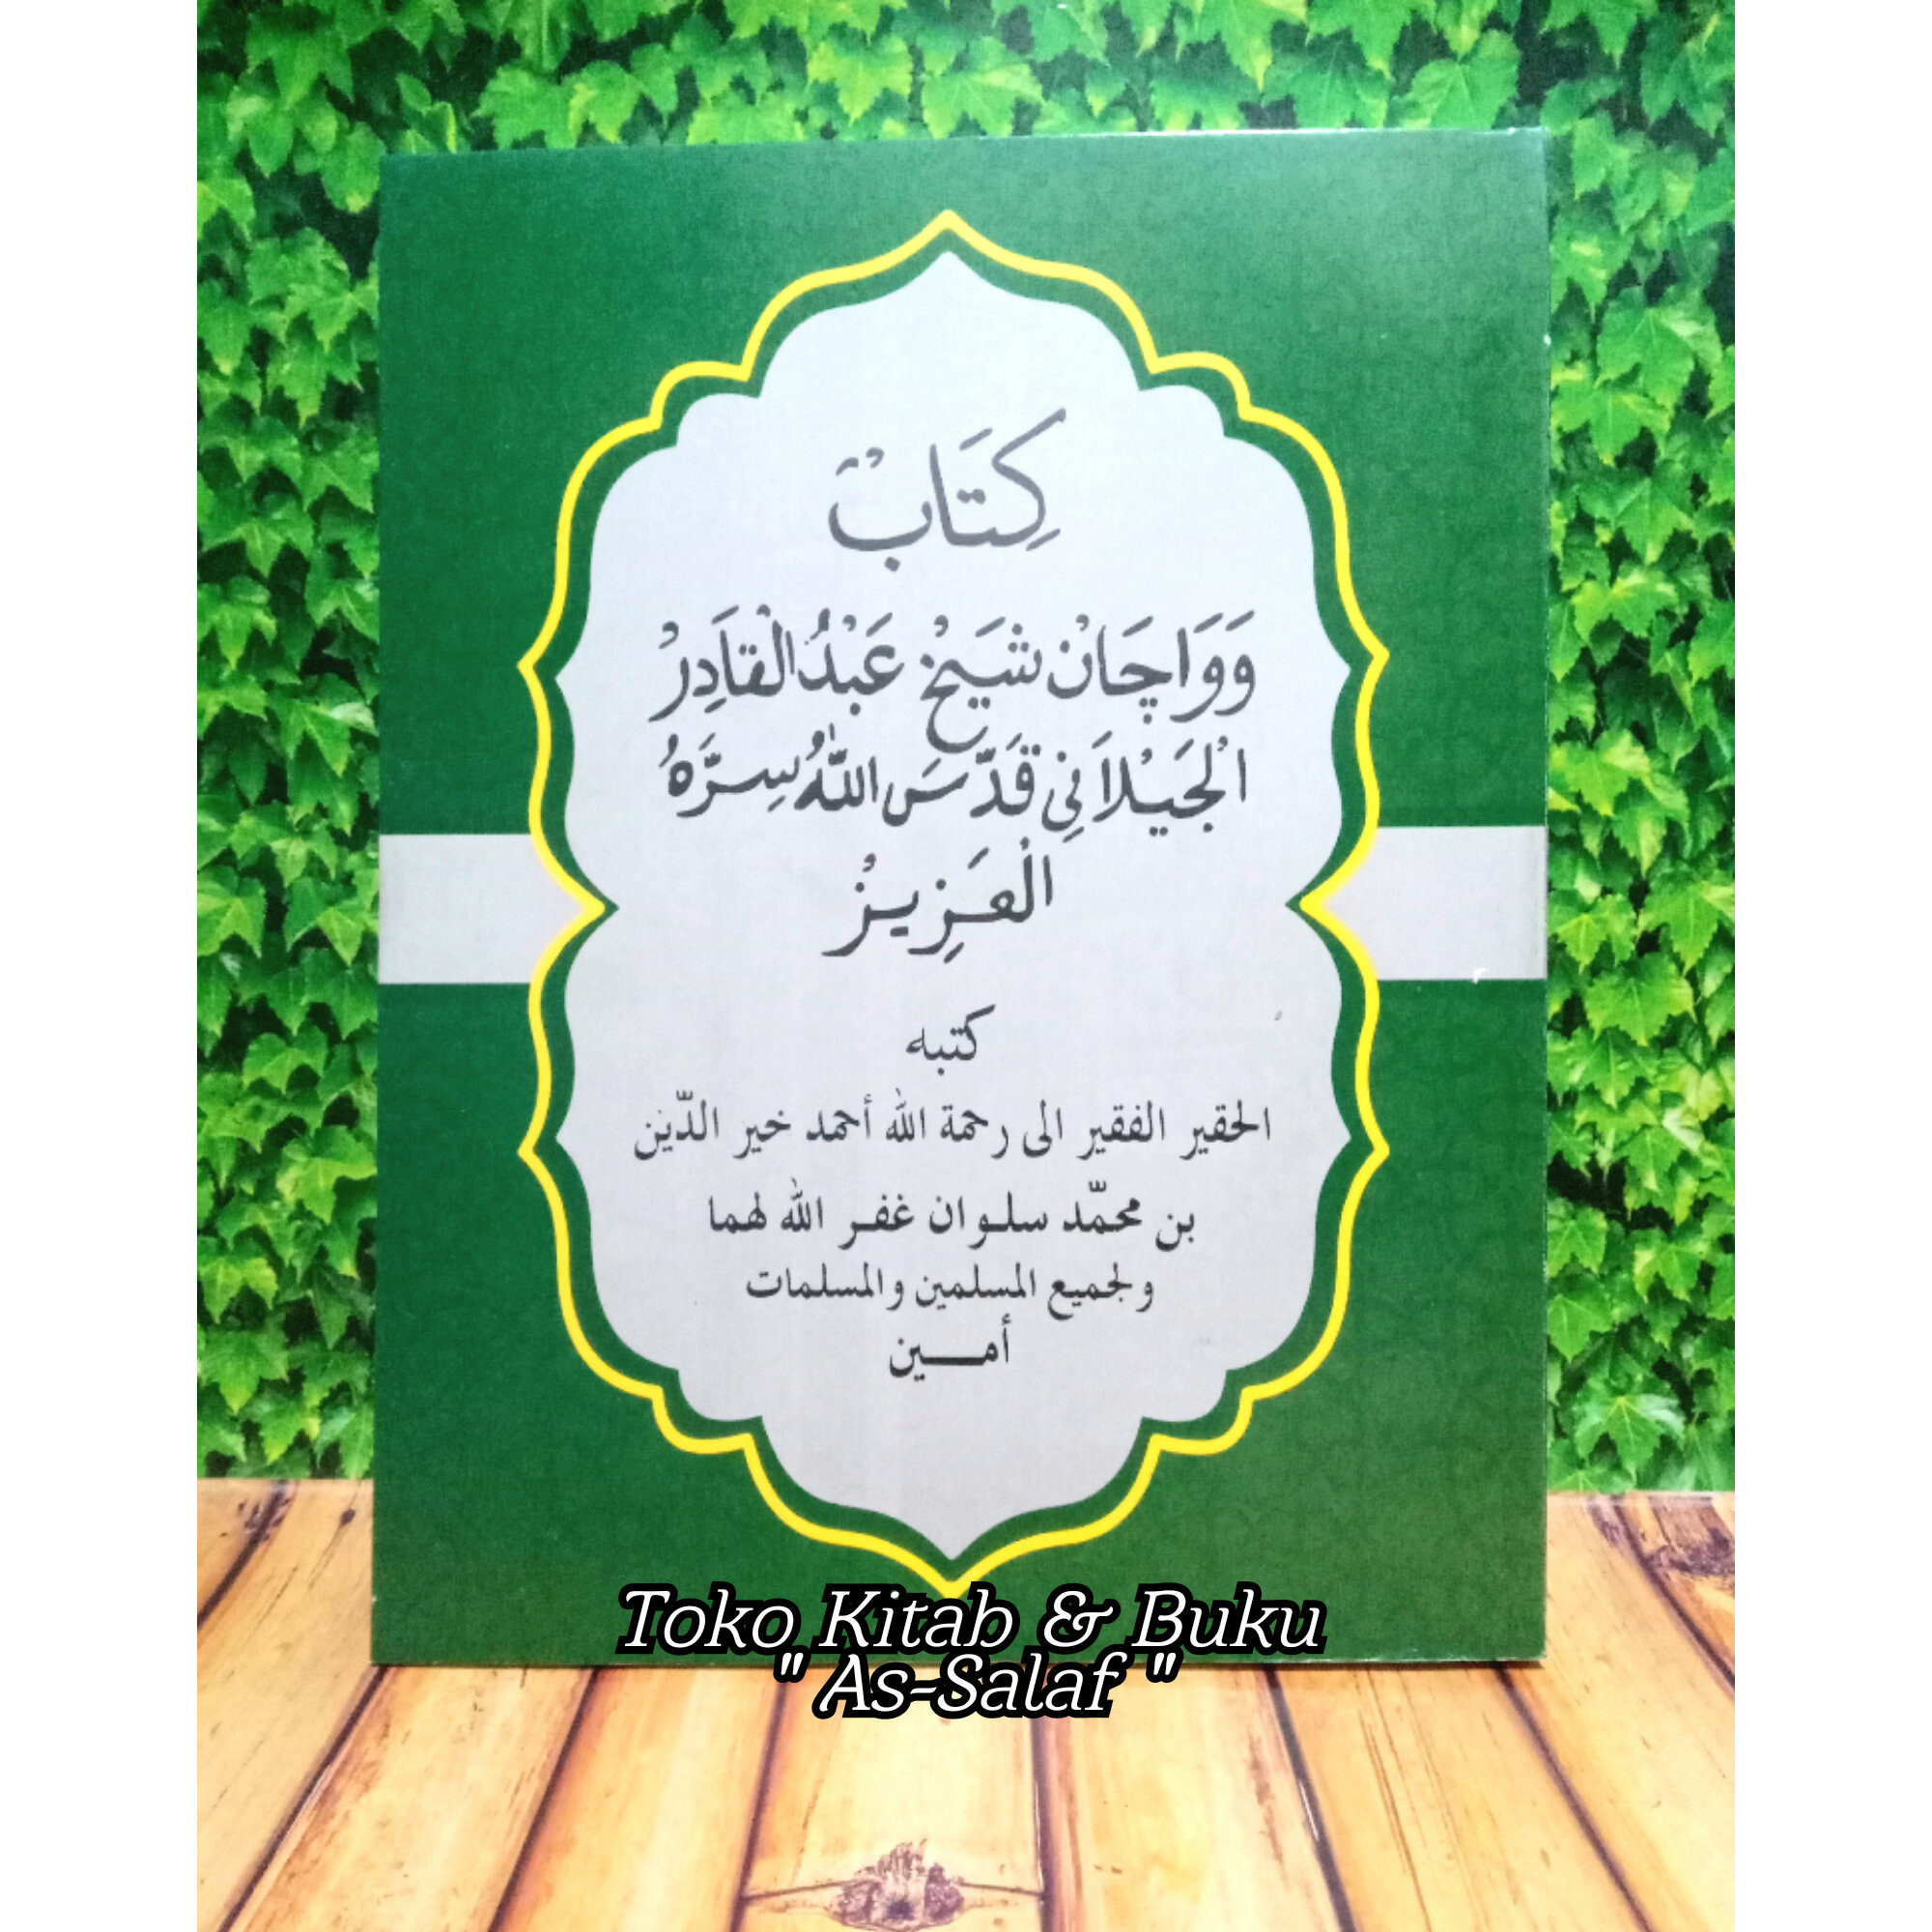 كِتَابْ
وَوَاچَانْ شَيْخْ عَبْدُ الْقَادِرْ
الْجَيْلاَنِي قَدَّسَ اللّٰهُ سِرَّهُ
الْعَزِيزُ
كتبه
الحقير الفقير الى رحمة الله أحمد خير الدّين
بن محمّد سلوان غفر الله لهما
ولجميع المسلمين والمسلمات
أمين
Toko Kitab & Buku
" As-Salaf "